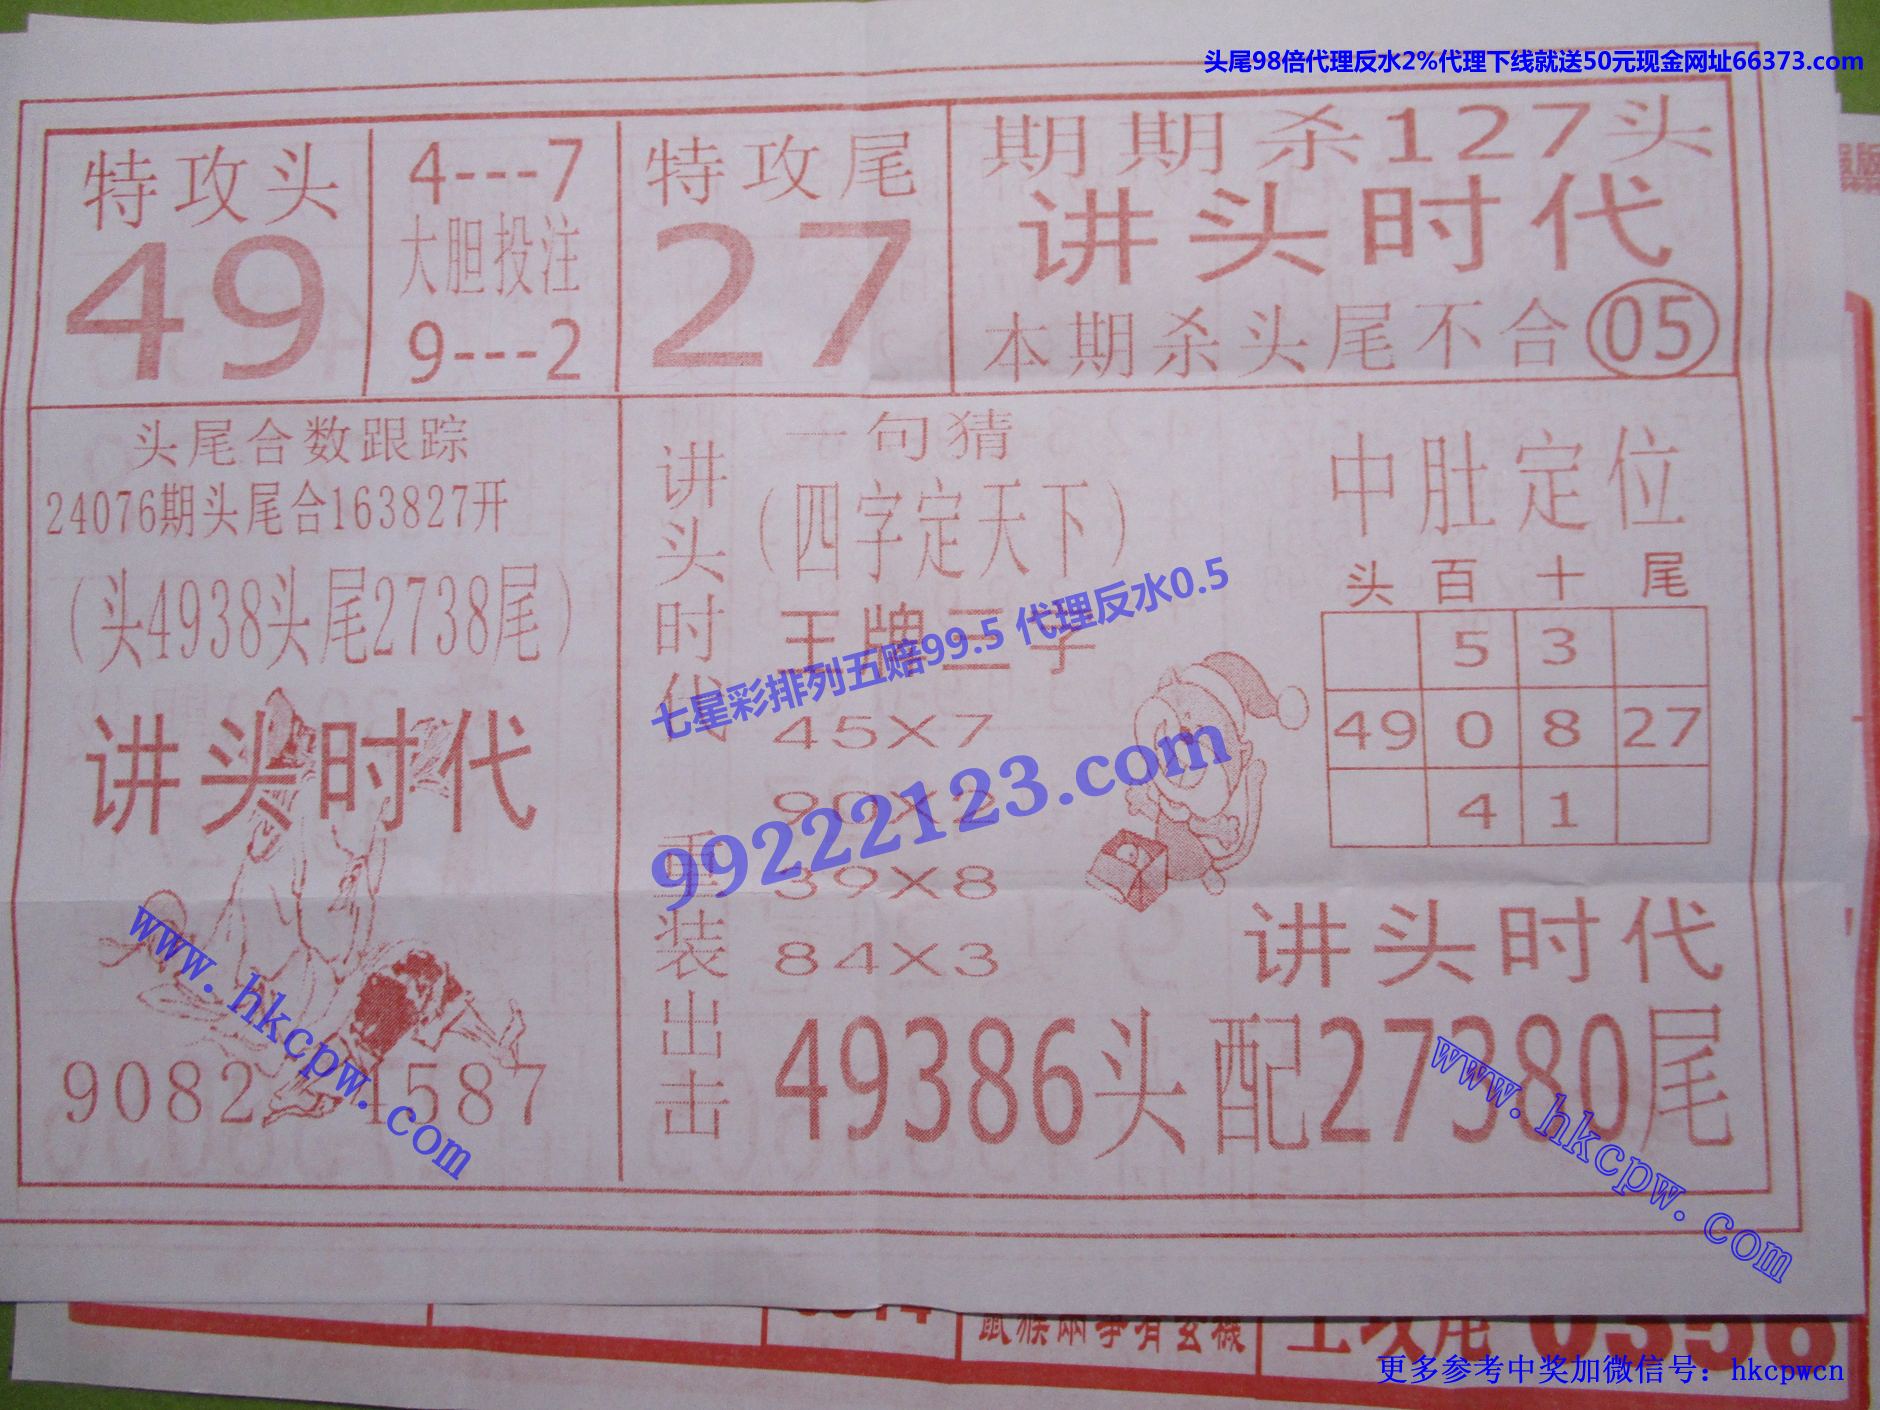 头尾98倍代理反水2%代理下线就送50元现金网址66373.com
特攻头
49
4---7
大胆投注
9---2
特攻尾
27
期期杀127头
讲头时代
本期杀头尾不合05
头尾合数跟踪
24076期头尾合163827开
（头4938头尾2738尾）
讲头时代
9082 4587
讲头时代 重装出击
一句猜
（四字定天下）
王牌三字
45X7
90X2
39X8
84X3
中肚定位
头 百 十 尾
5 3
49 0 8 27
4 1
讲头时代
49386头配27380尾
七星彩排列五赔99.5 代理反水0.5
99222123.com
www.hkcpw.com
www.hkcpw.com
鼠猴兩爭有玄機
0356
更多参考中奖加微信号：hkcpwcn